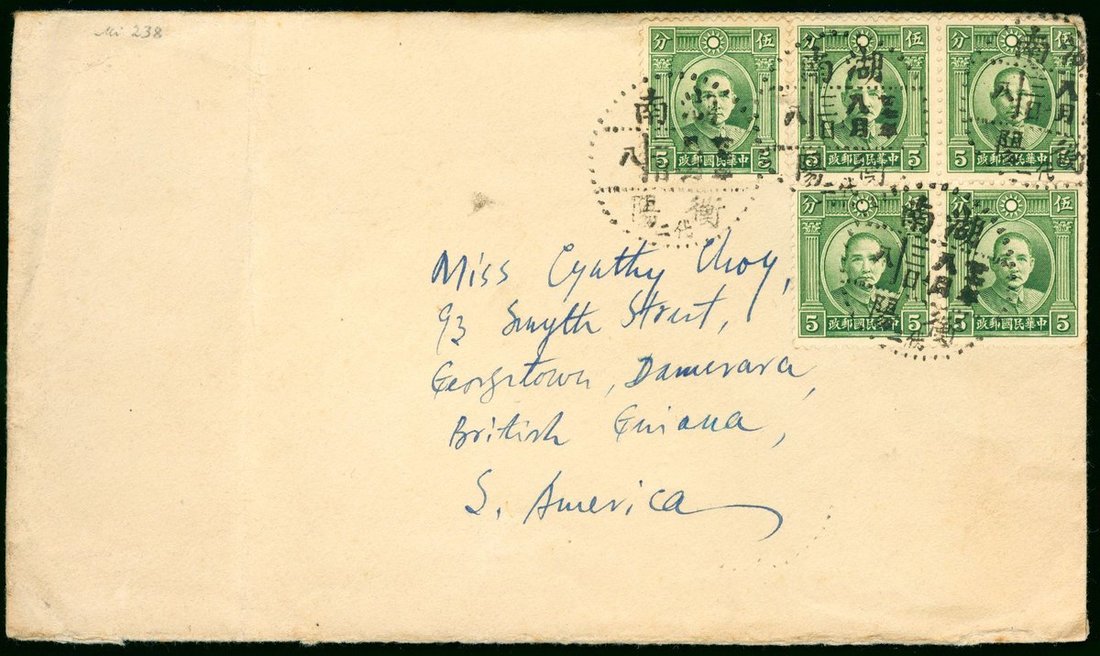 Mi 238
分 伍
5 中華民國郵政 5
分 伍
5 中華民國郵政 5
分 伍
5 中華民國郵政 5
分 伍
5 中華民國郵政 5
分 伍
5 中華民國郵政 5
湖南
八月
三日
八
衡陽
二代
Miss Cyathy Choy,
93 Smyth Street,
Georgetown, Damerara,
British Guiana,
S. America